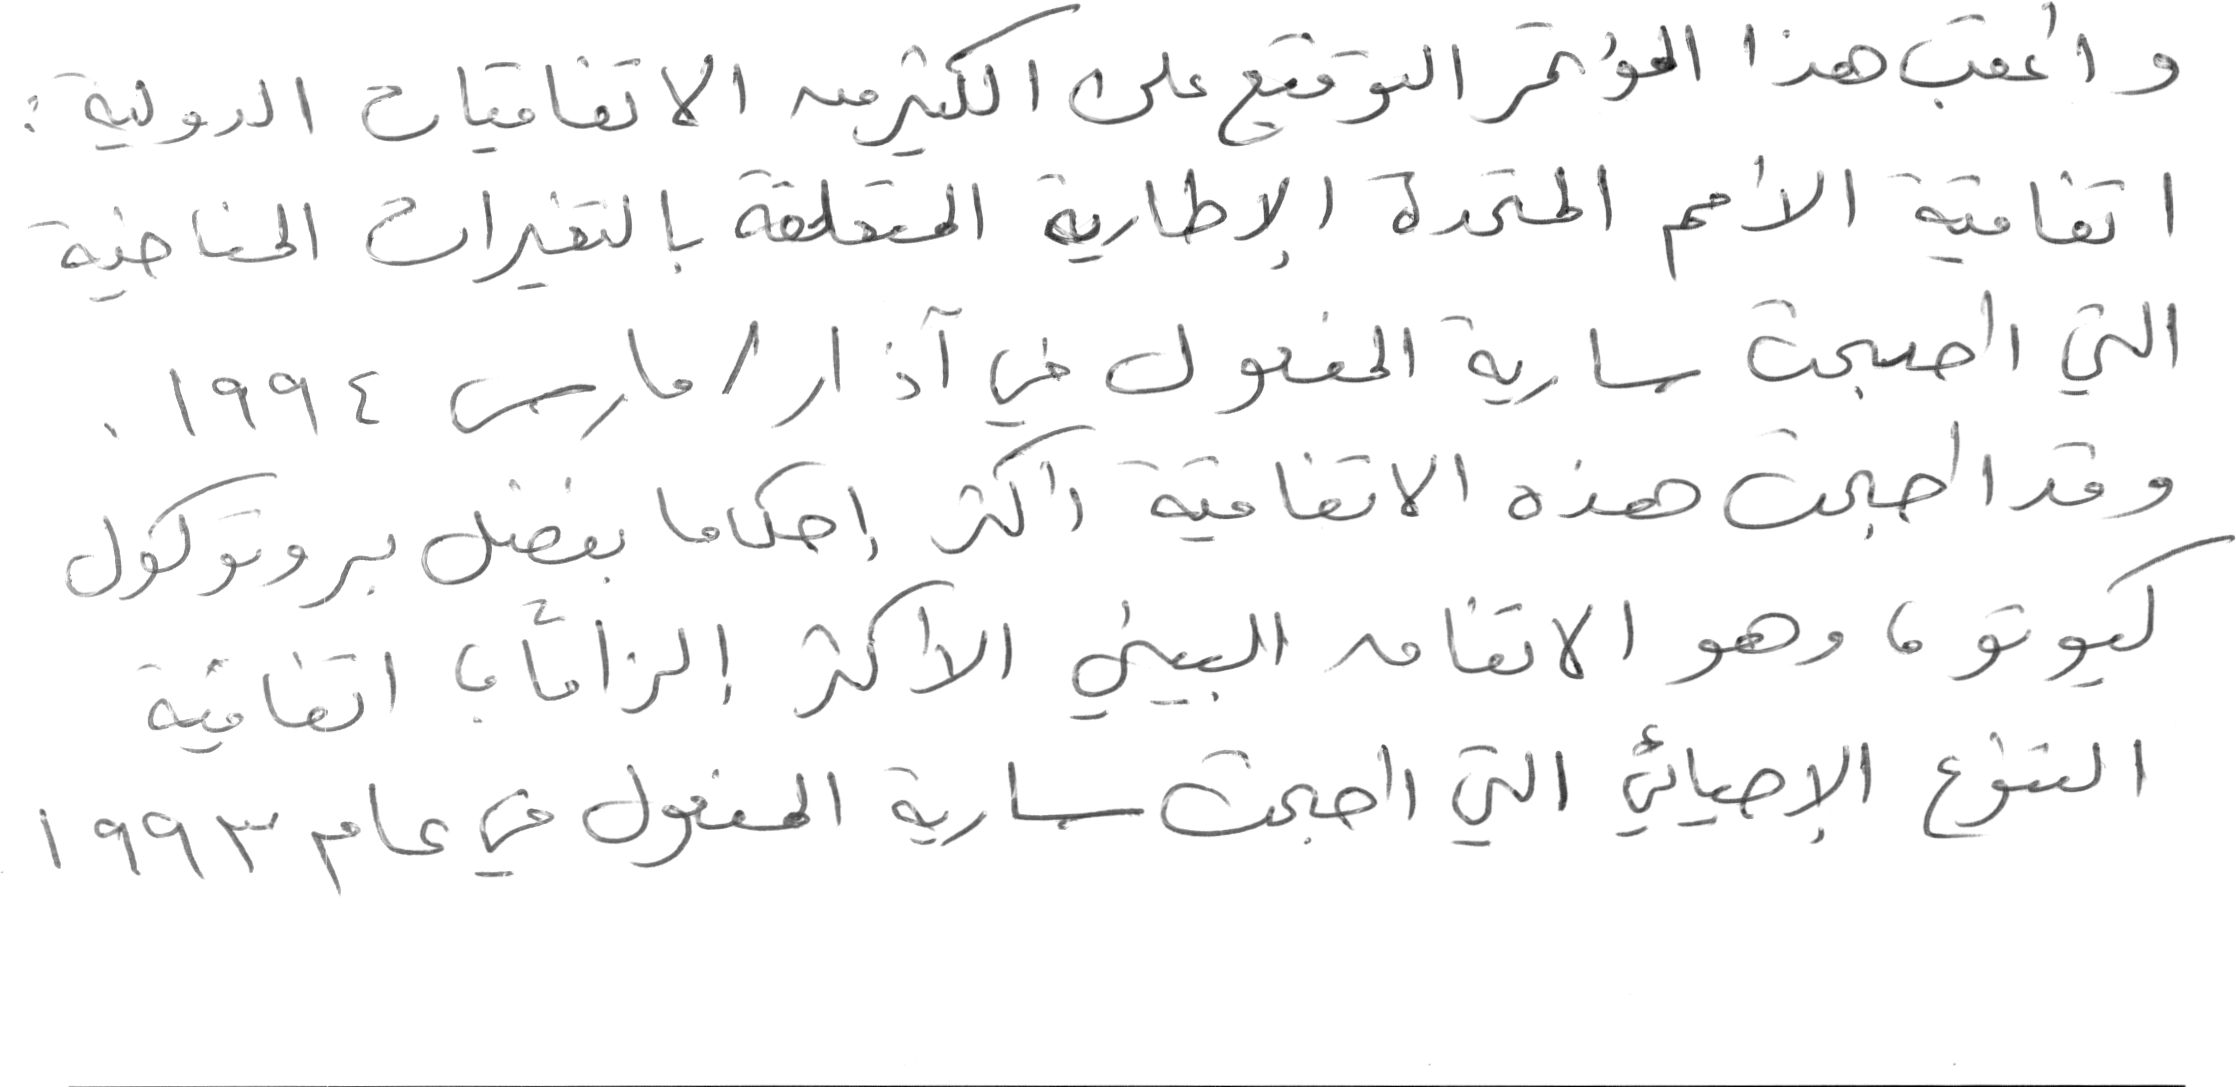 وأعقب هذا المؤتمر التوقيع على الكثير من الاتفاقيات الدولية :
اتفاقية الأمم المتحدة الإطارية المتعلقة بالتغيرات المناخية
التي أصبحت سارية المفعول في آذار/مارس ١٩٩٤ .
وقد أصبحت هذه الاتفاقية أكثر إحكاما بفضل بروتوكول
كيوتو ، وهو الاتفاق البيئي الأكثر إلزاماً ، اتفاقية
التنوع الإحيائي التي أصبحت سارية المفعول في عام ١٩٩٣